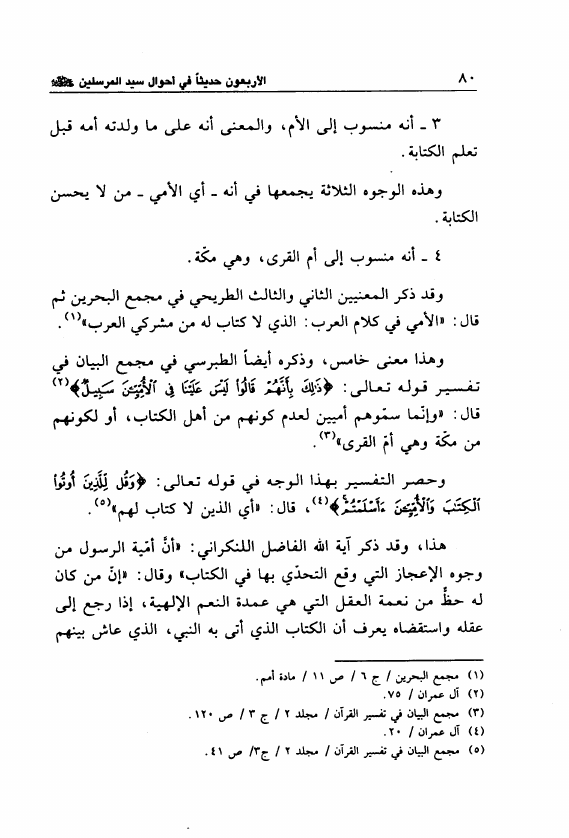 ٨٠
الأربعون حديثاً في أحوال سيد المرسلين ﷺ
٣ ـ أنه منسوب إلى الأم، والمعنى أنه على ما ولدته أمه قبل
تعلم الكتابة.
وهذه الوجوه الثلاثة يجمعها في أنه ـ أي الأمي ـ من لا يحسن
الكتابة.
٤ ـ أنه منسوب إلى أم القرى، وهي مكّة.
وقد ذكر المعنيين الثاني والثالث الطريحي في مجمع البحرين ثم
قال: «الأمي في كلام العرب: الذي لا كتاب له من مشركي العرب»(١).
وهذا معنى خامس، وذكره أيضاً الطبرسي في مجمع البيان في
تفسير قوله تعالى: ﴿ذَلِكَ بِأَنَّهُمْ قَالُوا۟ لَيْسَ عَلَيْنَا فِى ٱلْأُمِّيِّـۧنَ سَبِيلٌ﴾(٢)
قال: «وإنّما سمّوهم أميين لعدم كونهم من أهل الكتاب، أو لكونهم
من مكّة وهي أم القرى»(٣).
وحصر التفسير بهذا الوجه في قوله تعالى: ﴿وَقُل لِّلَّذِينَ أُوتُوا۟
ٱلْكِتَـٰبَ وَٱلْأُمِّيِّـۧنَ ءَأَسْلَمْتُمْ﴾(٤)، قال: «أي الذين لا كتاب لهم»(٥).
هذا، وقد ذكر آية الله الفاضل اللنكراني: «أنَّ أمّية الرسول من
وجوه الإعجاز التي وقع التحدّي بها في الكتاب» وقال: «إنّ من كان
له حظّ من نعمة العقل التي هي عمدة النعم الإلهية، إذا رجع إلى
عقله واستقضاه يعرف أن الكتاب الذي أتى به النبي، الذي عاش بينهم
(١) مجمع البحرين / ج ٦ / ص ١١ / مادة أمم.
(٢) آل عمران / ٧٥.
(٣) مجمع البيان في تفسير القرآن / مجلد ٢ / ج ٣ / ص ١٢٠.
(٤) آل عمران / ٢٠.
(٥) مجمع البيان في تفسير القرآن / مجلد ٢ / ج٣/ ص ٤١.